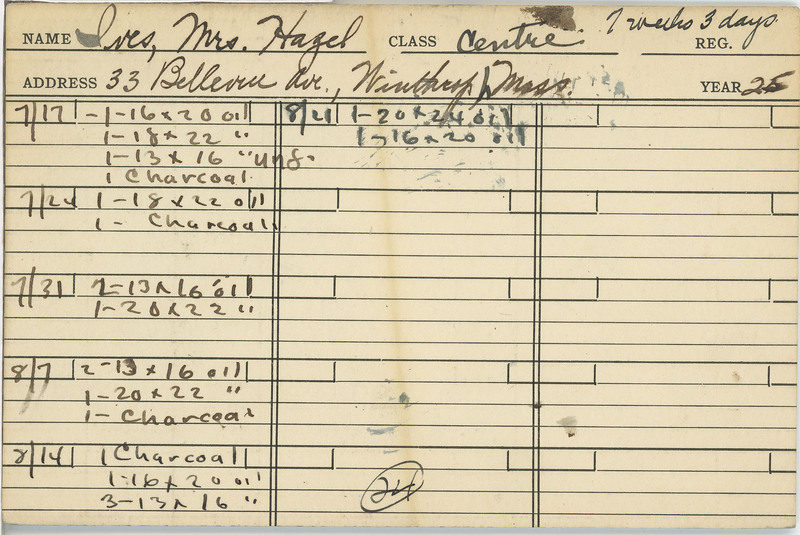 NAME Ives, Mrs. Hazel CLASS Centre 7 weeks 3 days REG.
ADDRESS 33 Bellevue Ave., Winthrop, Mass. YEAR 25
7/17 - 1-16x20 oil
1-18x22 "
1-13x16 " unf.
1 Charcoal
7/24 1-18x22 oil
1- Charcoal
7/31 2-13x16 oil
1-20x22 "
8/7 2-13x16 oil
1-20x22 "
1- Charcoal
8/14 1 Charcoal
1-16x20 oil
3-13x16 "
8/21 1-20x24 oil
1-16x20 oil
24